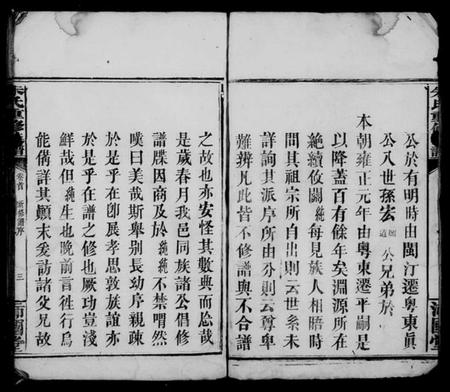 朱氏重修
譜
公於有明時由閩汀遷粵東眞
公八世孫宏
道
公兄弟於
本朝雍正元年由粵東遷平嗣是
以降蓋百有餘年矣淵源所在
絶續攸關
純
每見族人相晤時
問其祖宗所自出則云世系未
詳詢其派序所由分則云尊卑
難辨凡此皆不修譜與不合譜
之故也亦安怪其數典而忘哉
是歲春月我邑同族諸公倡修
譜牒因商及於
純
純
不禁喟然
嘆曰美哉斯舉别長幼序親疎
於是乎在卽展孝思敦族誼亦
於是乎在譜之修也厥功豈淺
鮮哉但
純
生也晚前言徃行烏
能偹詳其顚末爰訪諸父兄故
朱氏重修
譜
卷首
新修譜序
三
沛國堂